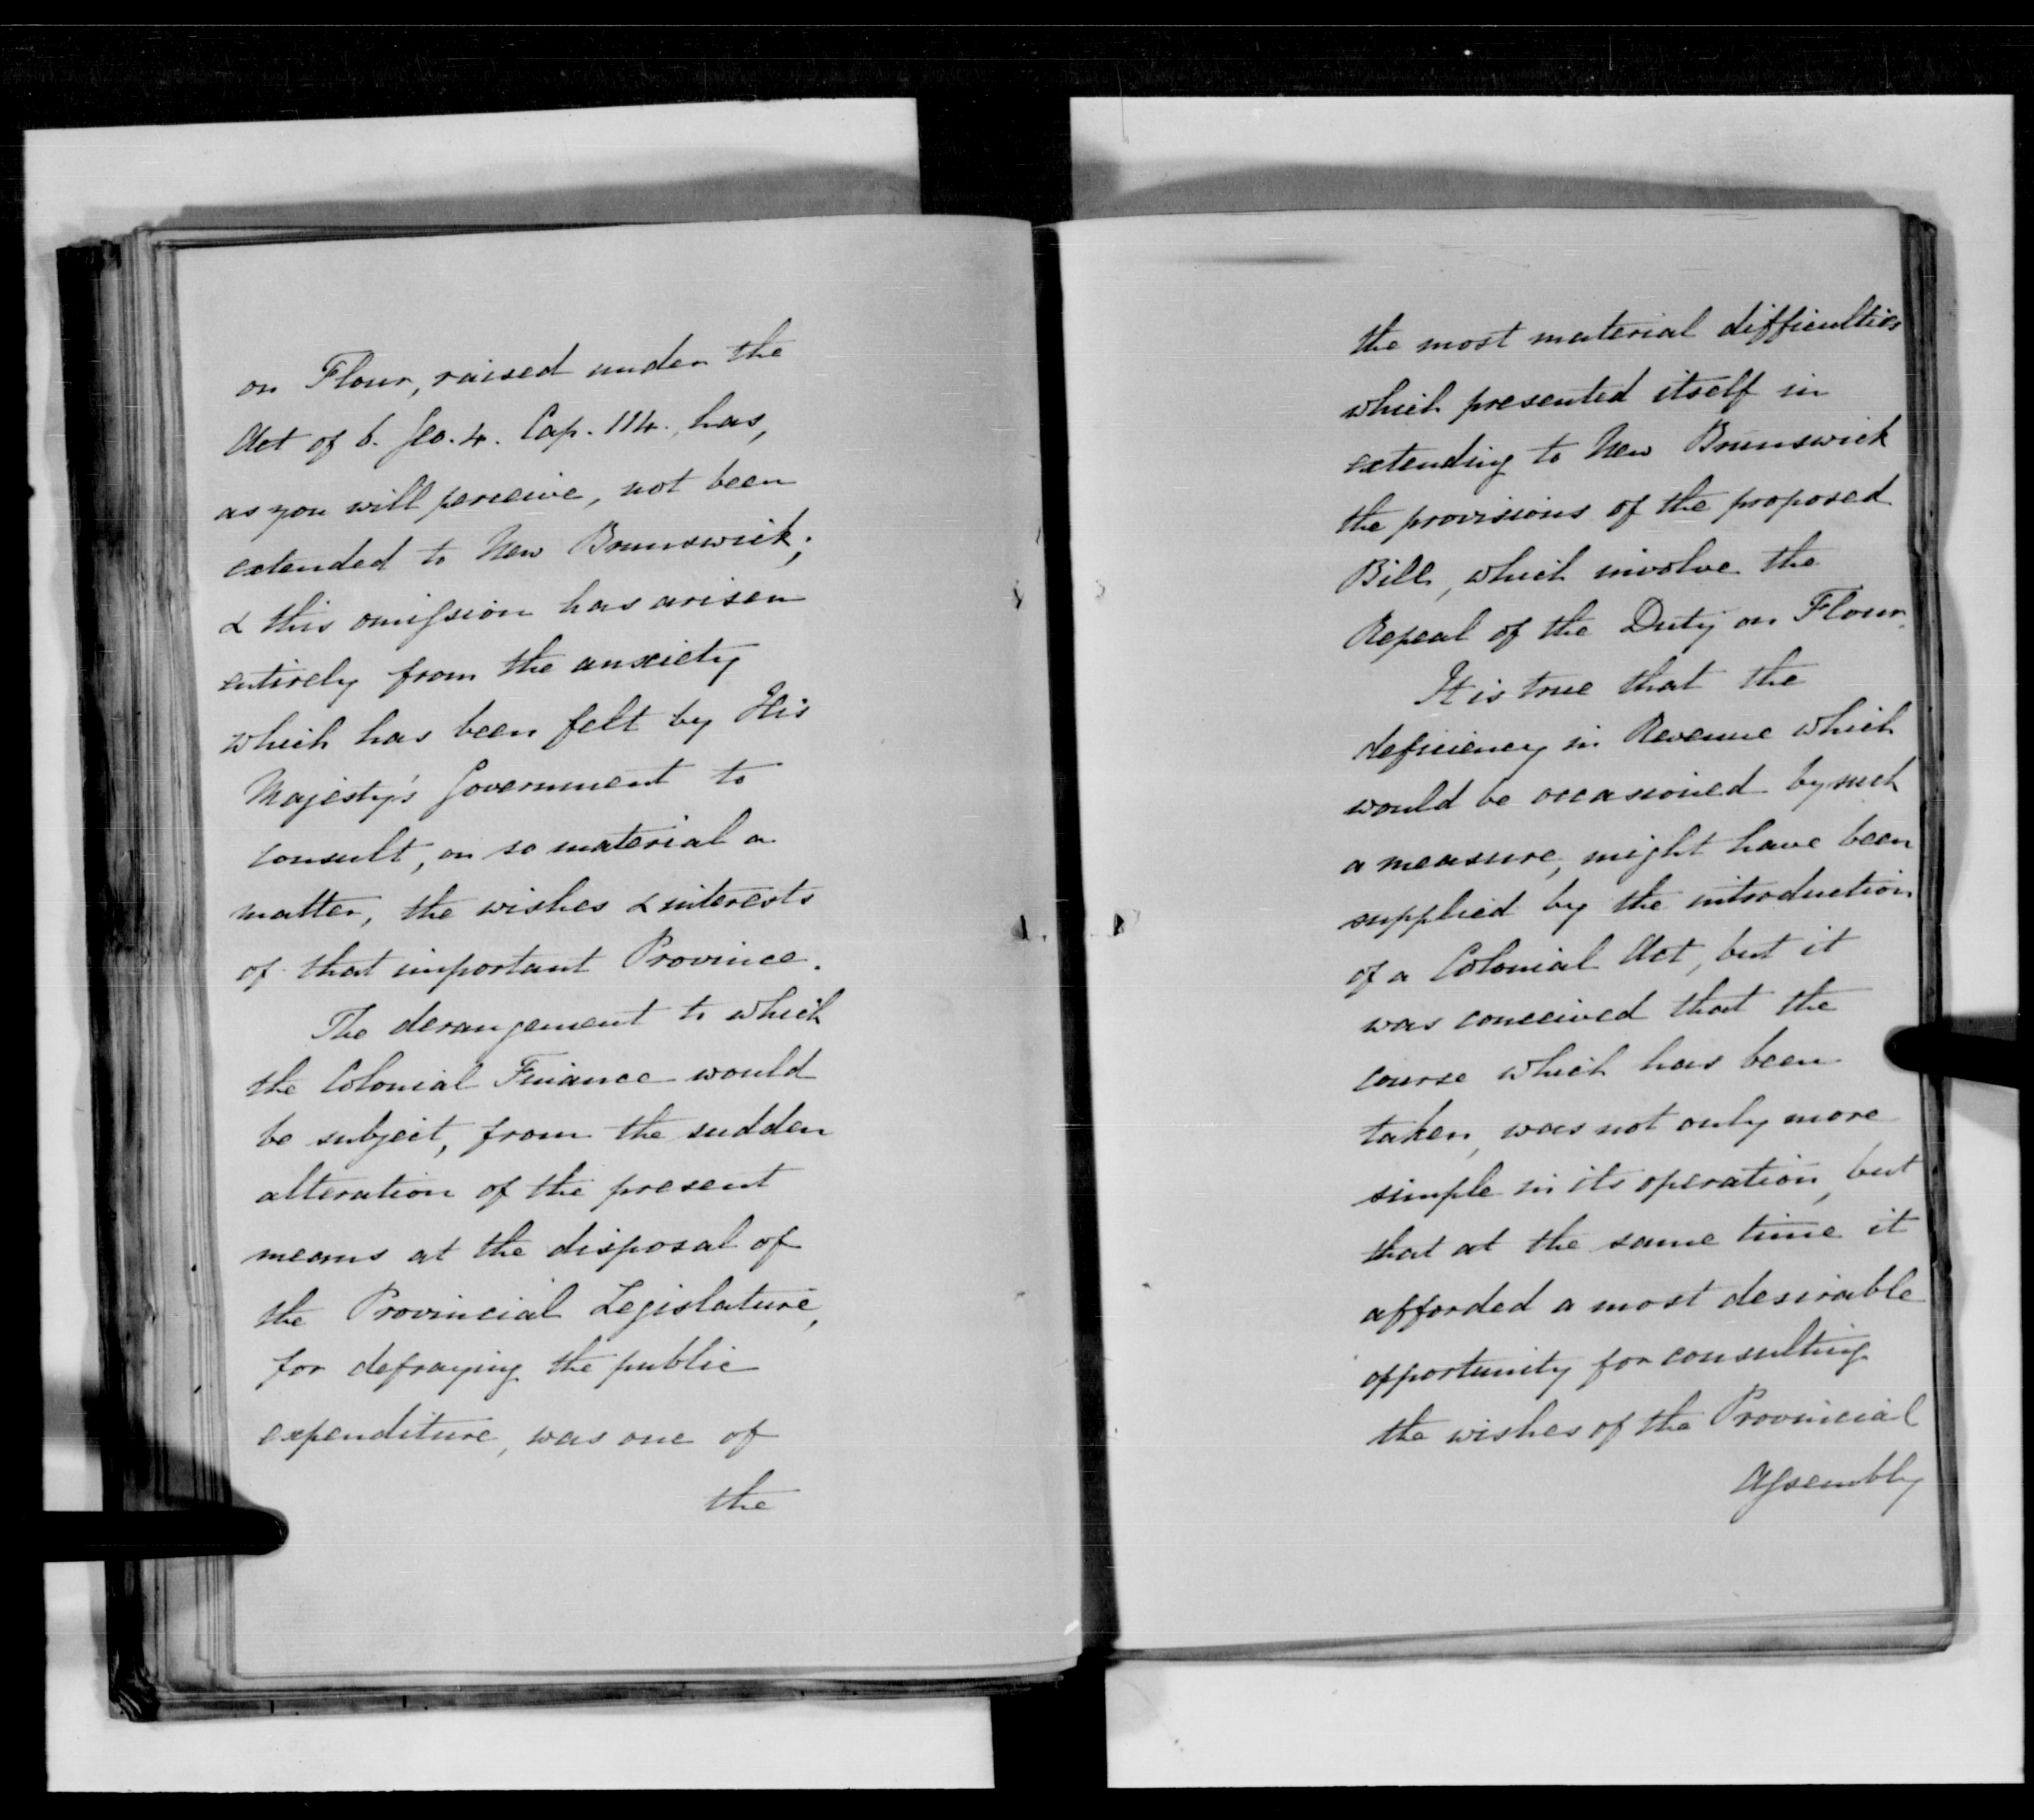 on Flour, raised under the
Act of 6. Geo. 4. Cap. 114. has,
as you will perceive, not been
extended to New Brunswick;
& this omission has arisen
entirely from the anxiety
which has been felt by His
Majesty's Government to
consult, on so material a
matter, the wishes & interests
of that important Province.
The derangement to which
the Colonial Finance would
be subject, from the sudden
alteration of the present
means at the disposal of
the Provincial Legislature,
for defraying the public
expenditure, was one of
the
the most material difficulties
which presented itself in
extending to New Brunswick
the provisions of the proposed
Bill, which involve the
Repeal of the Duty on Flour.
It is true that the
deficiency in Revenue which
would be occasioned by such
a measure, might have been
supplied by the introduction
of a Colonial Act, but it
was conceived that the
course which has been
taken, was not only more
simple in its operation, but
that at the same time it
afforded a most desirable
opportunity for consulting
the wishes of the Provincial
Assembly